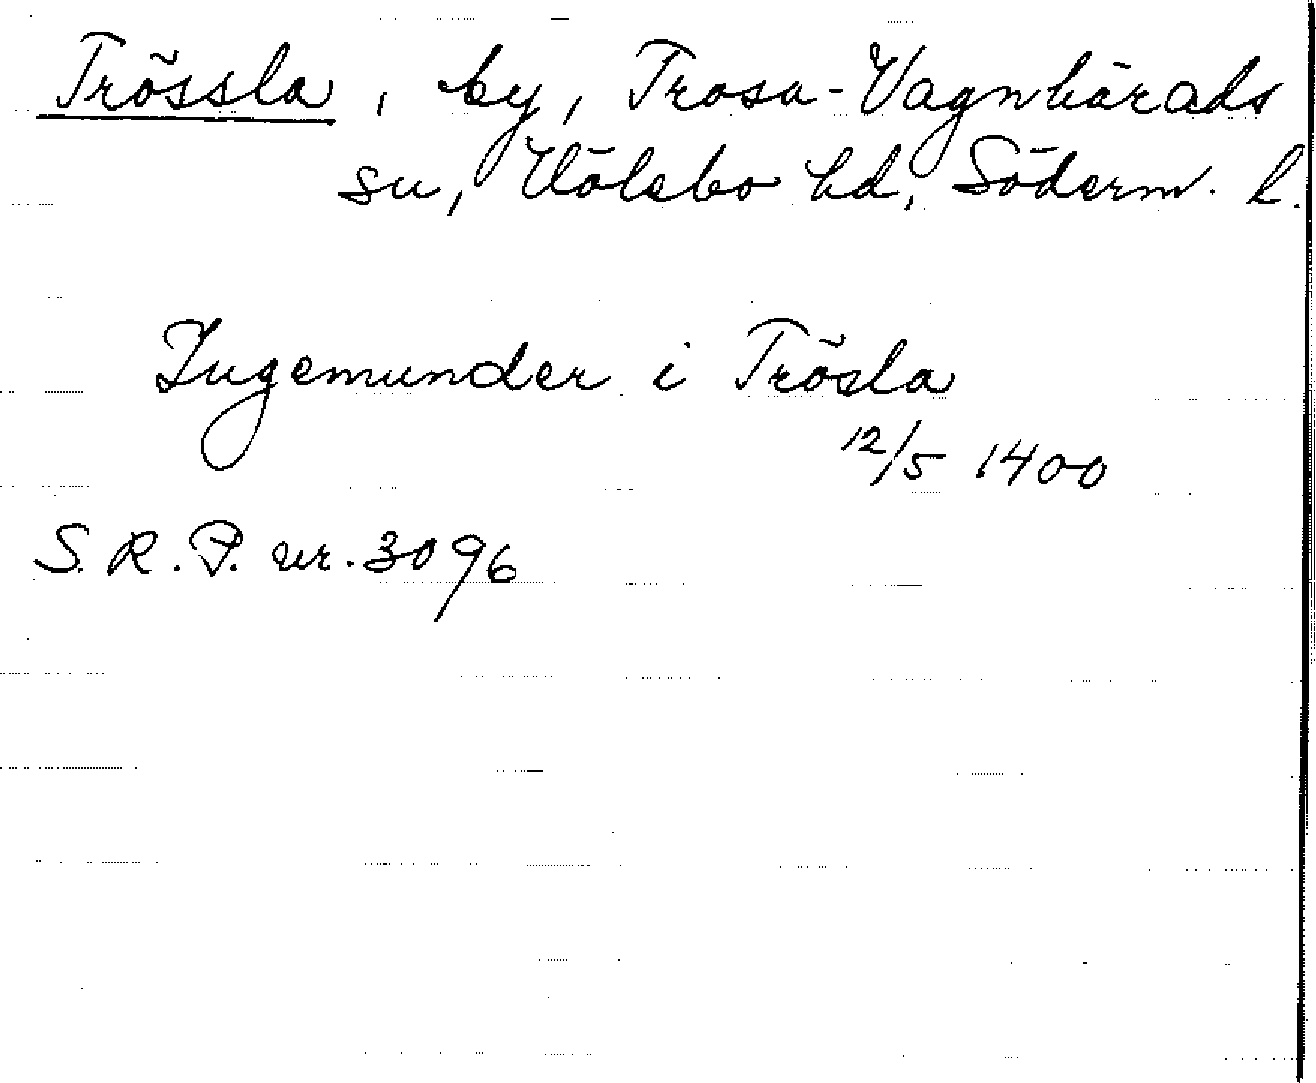 Trössla, by, Trosa-Vagnhärads
sn, Hölebo hd, Söderm. l.
Ingemunder i Trösla
12/5 1400
S. R. P. nr. 3096